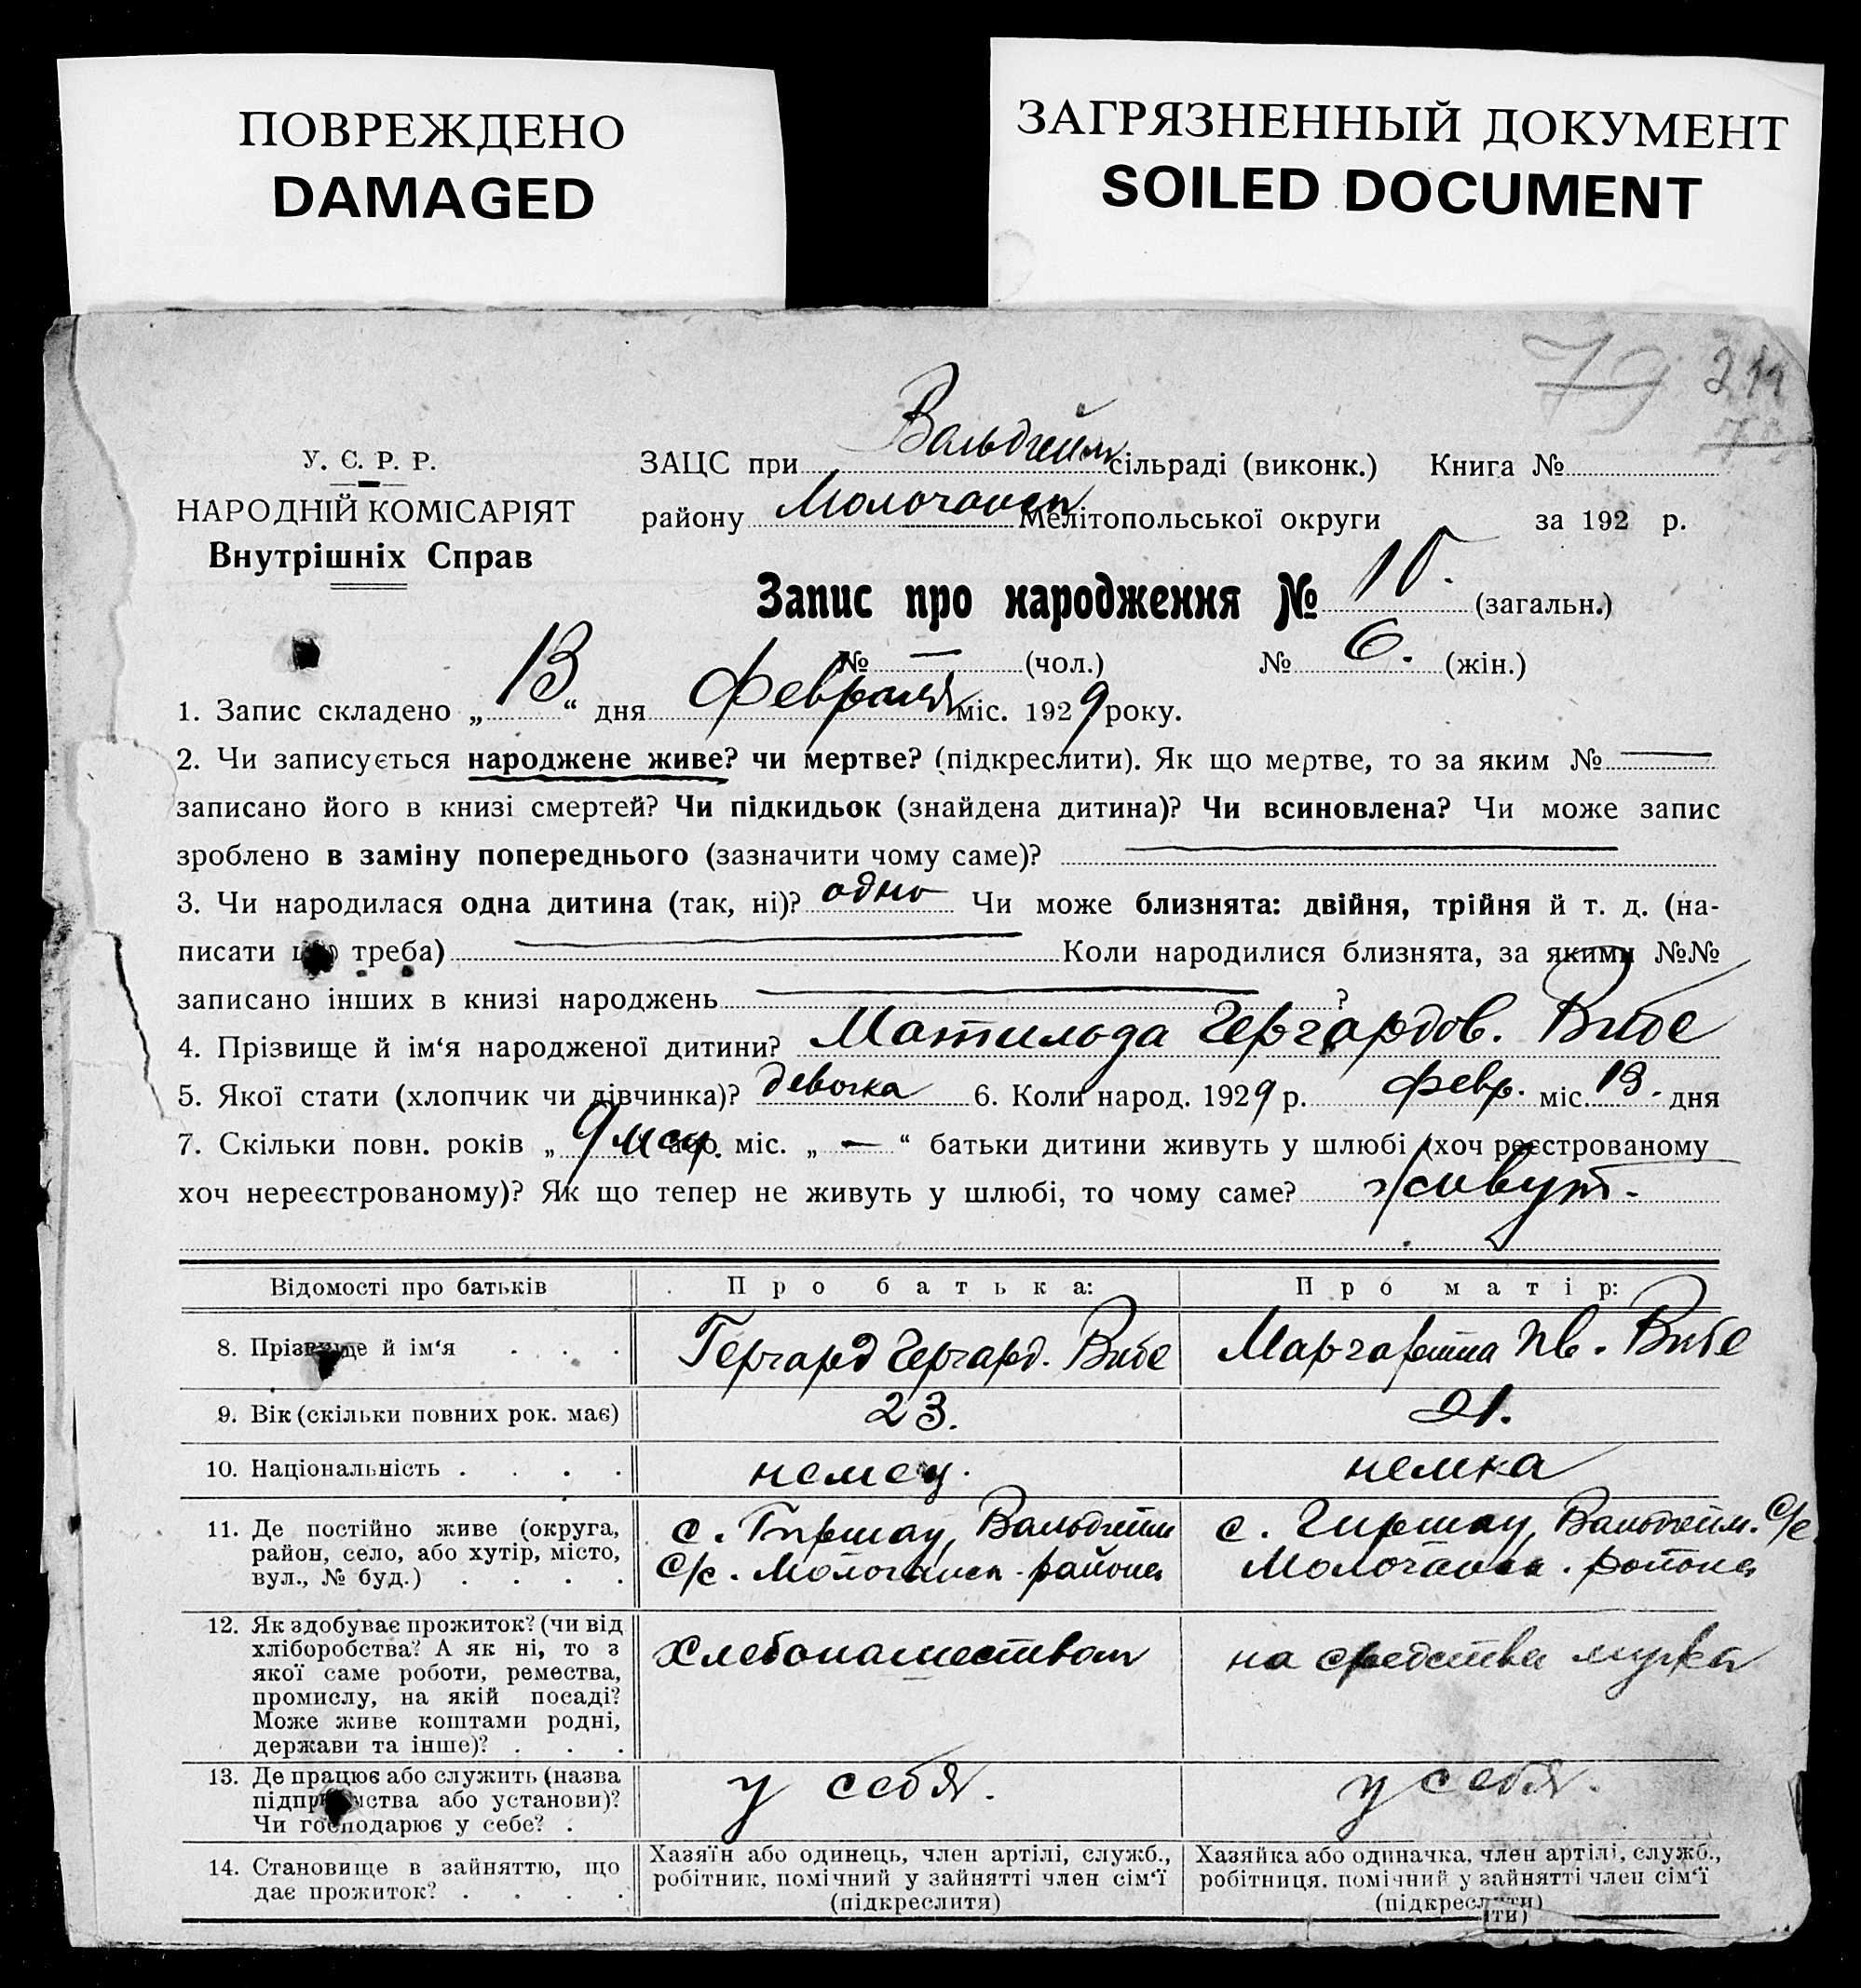 ПОВРЕЖДЕНО
DAMAGED
ЗАГРЯЗНЕННЫЙ ДОКУМЕНТ
SOILED DOCUMENT
79 211
У. С. Р. Р.
НАРОДНІЙ КОМІСАРІЯТ
Внутрішніх Справ
ЗАЦС при Вальдгейм сільраді (виконк.) Книга №
району Молочанск Мелітопольської округи за 192 р.
Запис про народження № 10. (загальн.)
№ — (чол.) № 6. (жін.)
1. Запис складено „ 13 “ дня февраля міс. 1929 року.
2. Чи записується народжене живе? чи мертве? (підкреслити). Як що мертве, то за яким № —
записано його в книзі смертей? Чи підкидьок (знайдена дитина)? Чи всиновлена? Чи може запис
зроблено в заміну попереднього (зазначити чому саме)? —
3. Чи народилася одна дитина (так, ні)? одно Чи може близнята: двійня, трійня й т. д. (на-
писати що треба) — Коли народилися близнята, за якими №№
записано інших в книзі народжень — ?
4. Прізвище й ім‘я народженої дитини? Матильда Гергардов. Вибе
5. Якої стати (хлопчик чи дівчинка)? девочка 6. Коли народ. 1929 р. февр. міс. 13. дня
7. Скільки повн. років „ 9 мсц. або міс. „ — “ батьки дитини живуть у шлюбі (хоч реєстрованому
хоч нереєстрованому)? Як що тепер не живуть у шлюбі, то чому саме? живут.
Відомості про батьків Про батька: Про матір:
8. Прізвище й ім‘я . . . Гергард Гергард. Вибе Маргарита Ив. Вибе
9. Вік (скільки повних рок. має) 23. 21.
10. Національність . . . . немец. немка
11. Де постійно живе (округа,
район, село, або хутір, місто,
вул., № буд.) . . . .
с. Гиршау, Вальдгейм
с/с. Молочанск. района
с. Гиршау, Вальдгейм. с/с
Молочанск. района
12. Як здобуває прожиток? (чи від
хліборобства? А як ні, то з
якої саме роботи, ремества,
промислу, на якій посаді?
Може живе коштами родні,
держави та інше)? . . .
Хлебопашеством
на средства мужа
13. Де працює або служить (назва
підприємства або установи)?
Чи господарює у себе? .
у себя.
у себя.
14. Становище в зайняттю, що
дає прожиток? . . . .
Хазяїн або одинець, член артілі, служб.,
робітник, помічний у зайнятті член сім‘ї
(підкреслити)
Хазяйка або одиначка, член артілі, служб.,
робітниця, помічний у зайнятті член сім‘ї
(підкреслити)
ІТИ)